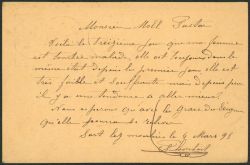 Monsieur Noël Pector
Voilà le treizième jour que ma femme
est tombée malade, elle est toujours dans le
même état depuis le premier jour, elle est
très faible et souffrante mais depuis peu
il y a une tendance a aller mieux.
Nous espérons qu'avec la Grace du Seigneur
qu'elle pourra se relever
Sart les moulins le 9 Mars 98